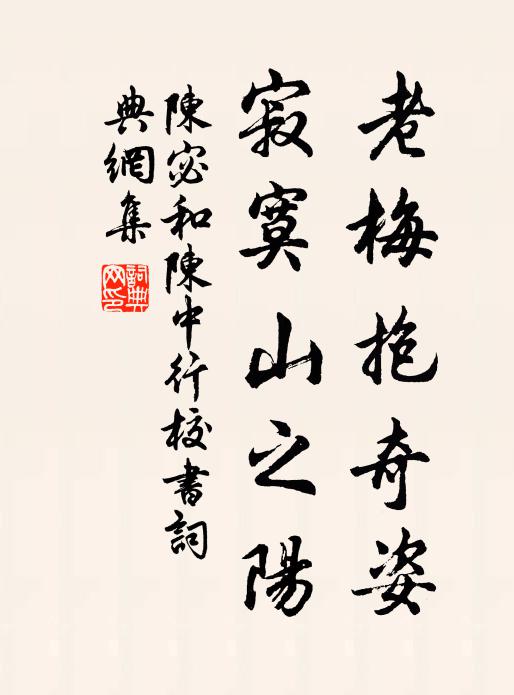 老梅抱奇姿
寂寞山之陽
陳宓和陳中行校書詞
典網集
詞典
网印